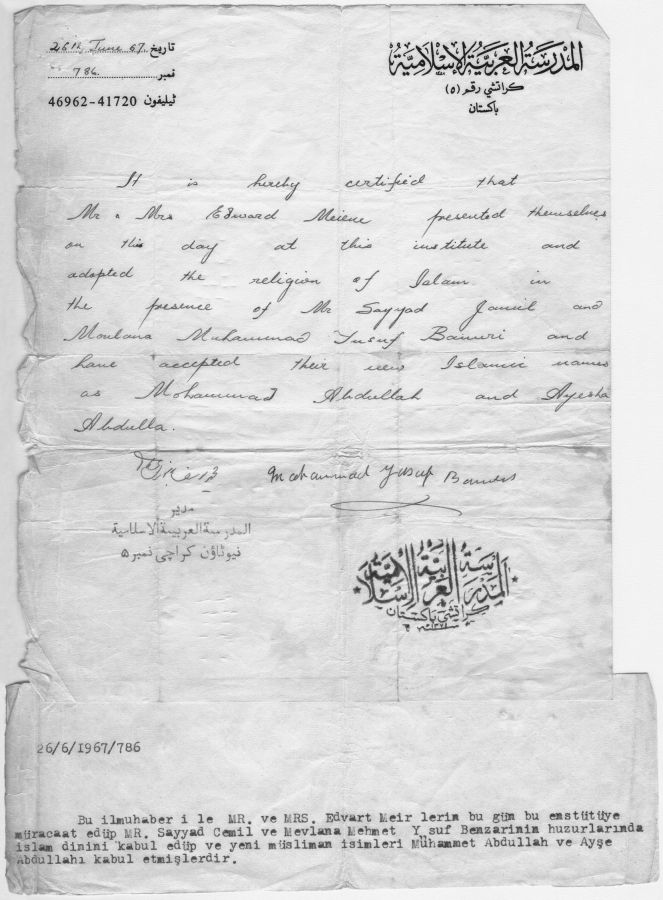 المدرسة العربية الإسلامية
كراتشي رقم (٥)
باكستان
تاريخ 26th June 67.
نمبر 786.
ٹیلیفون 41720-46962
It is hereby certified that
Mr & Mrs Edward Meiene presented themselves
on this day at this institute and
adopted the religion of Islam in
the presence of Mr Sayyad Jamil and
Moulana Muhammad Yusuf Banuri and
have accepted their new Islamic names
as Mohammad Abdullah and Ayesha
Abdulla.
Mohammad Yusuf
مدير
المدرسة العربية الاسلامية
نیوٹاؤن کراچی نمبر ۵
المدرسة العربية الإسلامية
كراتشي باكستان
26/6/1967/786
Bu ilmuhaber i le MR. ve MRS. Edvart Meir lerin bu gün bu enstütüye
müracaat edüp MR. Sayyad Cemil ve Mevlana Mehmet Y suf Benzarinin huzurlarında
islam dinini kabul edüp ve yeni müsliman isimleri Mühammet Abdullah ve Ayşe
Abdullahı kabul etmişlerdir.